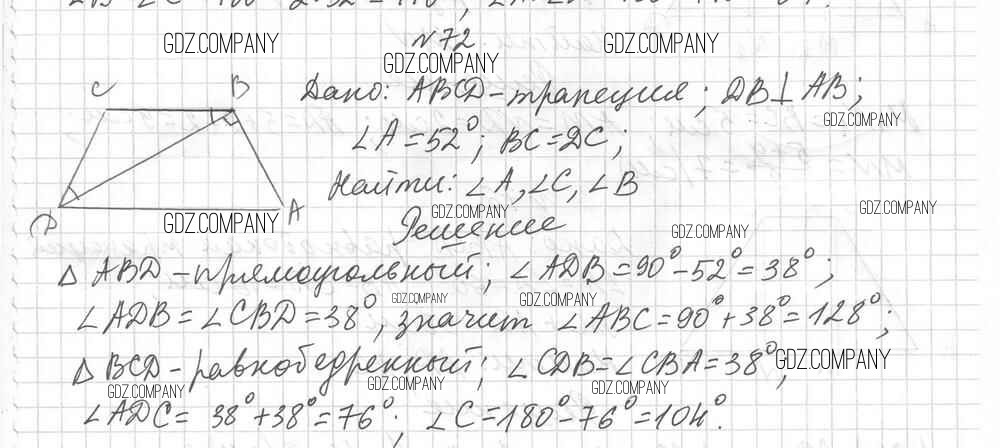 N72
GDZ.COMPANY GDZ.COMPANY
GDZ.COMPANY
C B
Дано: ABCD-трапеция; DB⊥AB;
GDZ.COMPANY
∠A=52°; BC=DC;
Найти: ∠A, ∠C, ∠B
D A
GDZ.COMPANY GDZ.COMPANY GDZ.COMPANY
Решение
GDZ.COMPANY
△ ABD-прямоугольный; ∠ADB=90°-52°=38°;
GDZ.COMPANY GDZ.COMPANY
∠ADB=∠CBD=38°, значит ∠ABC=90°+38°=128°;
△ BCD-равнобедренный; ∠CDB=∠CBA=38°;
GDZ.COMPANY
GDZ.COMPANY GDZ.COMPANY GDZ.COMPANY
∠ADC=38°+38°=76°; ∠C=180°-76°=104°.